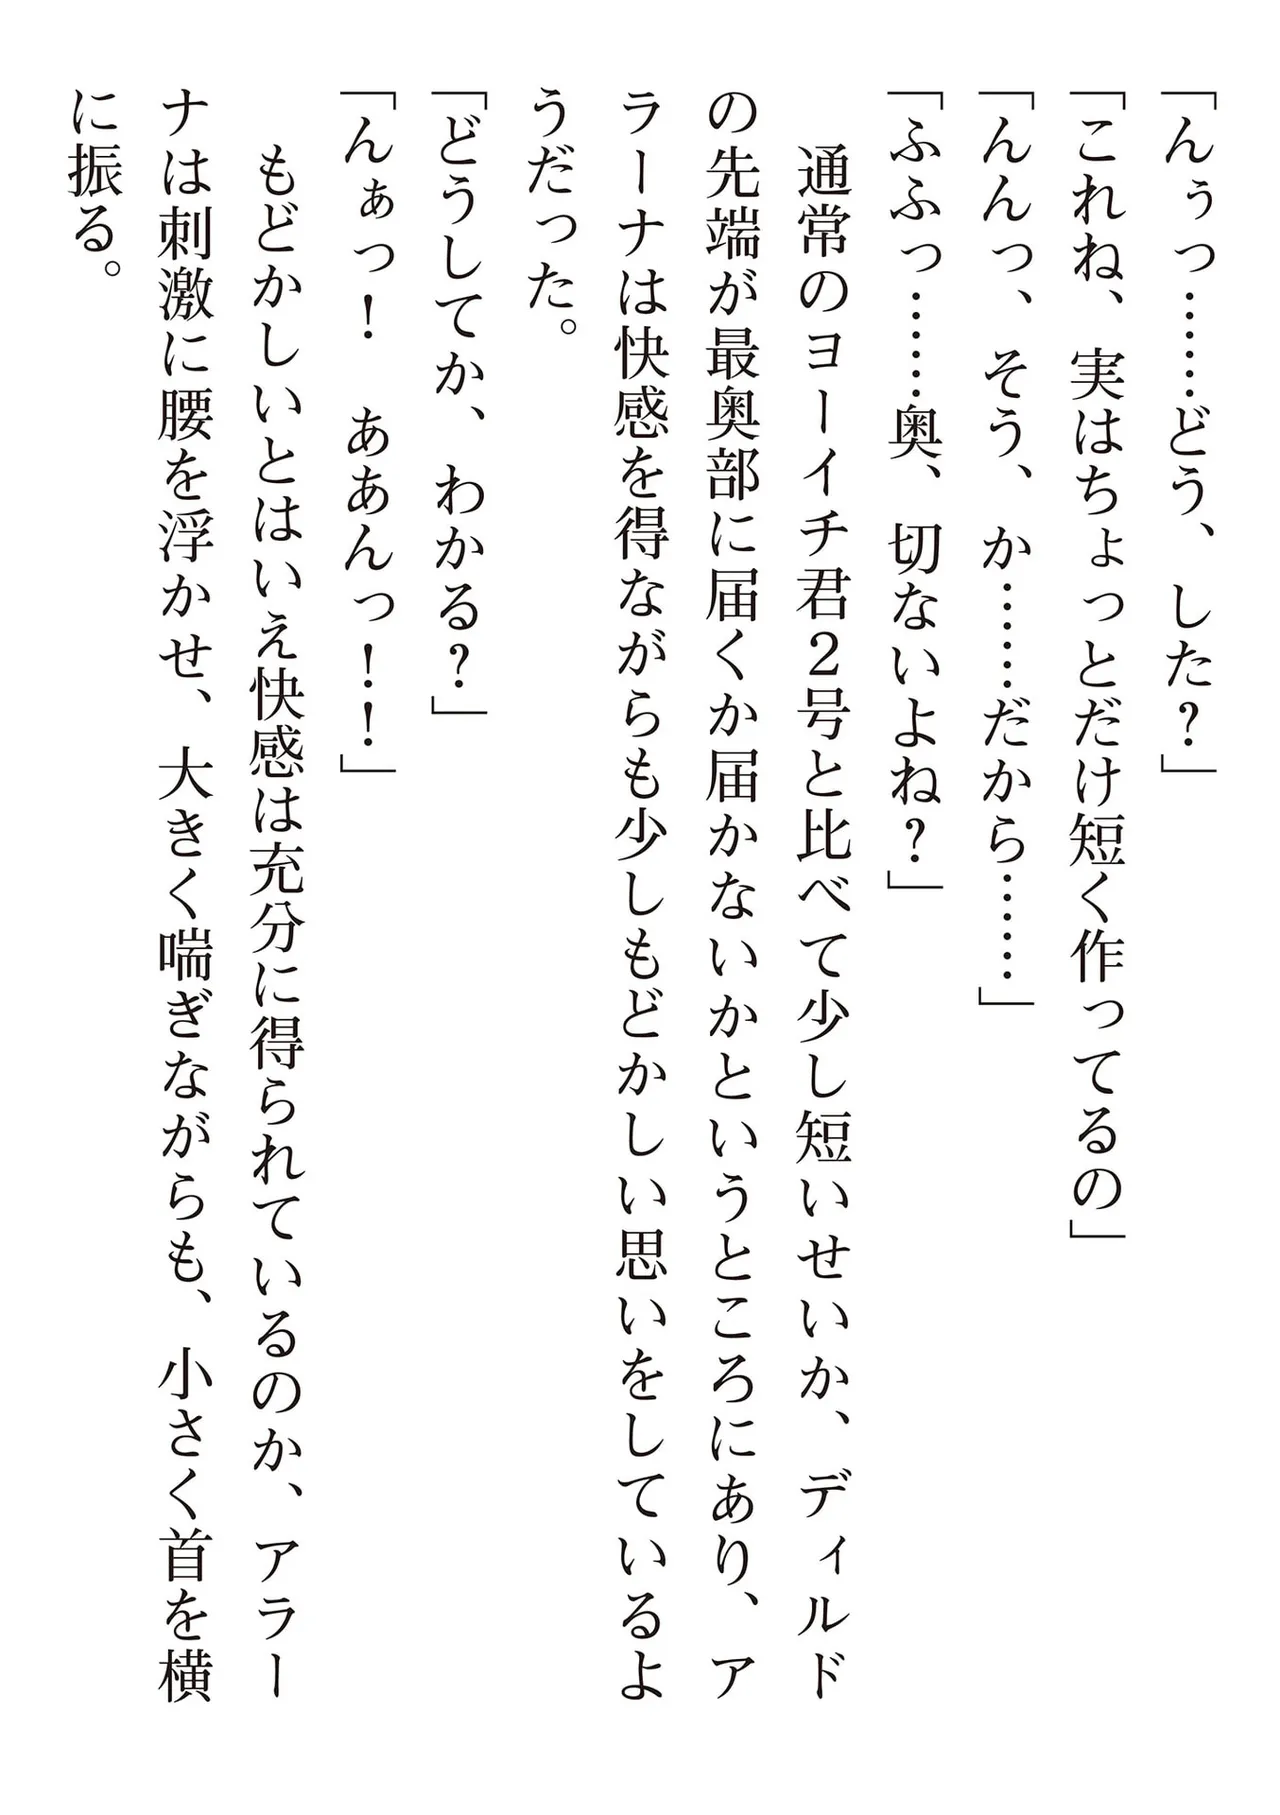 「んぅっ………どう、した?」
「これね、実はちょっとだけ短く作ってるの」
「んんっ、そう、か………だから………」
「ふふっ………奥、切ないよね?」
　通常のヨーイチ君2号と比べて少し短いせいか、ディルド
の先端が最奥部に届くか届かないかというところにあり、ア
ラーナは快感を得ながらも少しもどかしい思いをしているよ
うだった。
「どうしてか、わかる?」
「んぁっ!　ああんっ!!」
　もどかしいとはいえ快感は充分に得られているのか、アラー
ナは刺激に腰を浮かせ、大きく喘ぎながらも、小さく首を横
に振る。